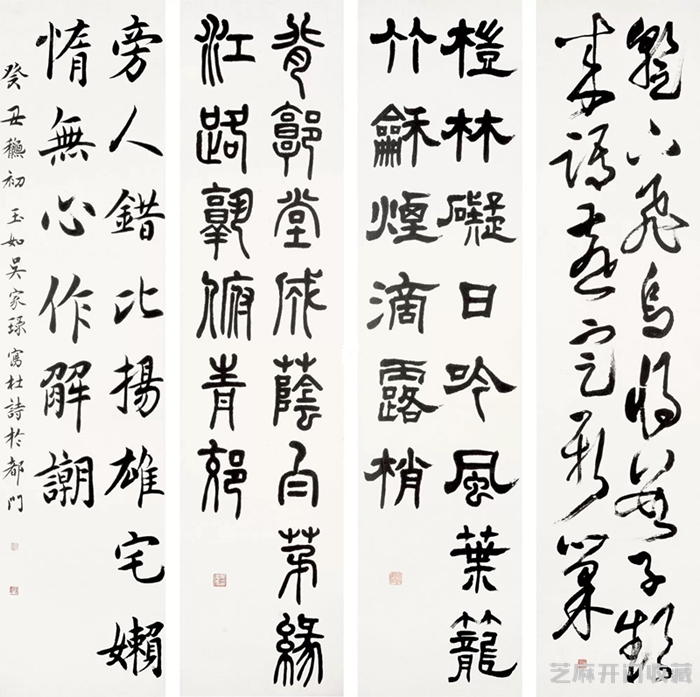 暫下飛烏將數子頻
來語燕定新巢
榿林礙日吟風葉籠
竹龢煙滴露梢
背郭堂成蔭白茅緣
江路孰俯青郊
旁人錯比揚雄宅嬾
惰無心作解謿
癸丑龝初 玉如吳家琭寫杜詩於都門
芝麻开门收藏